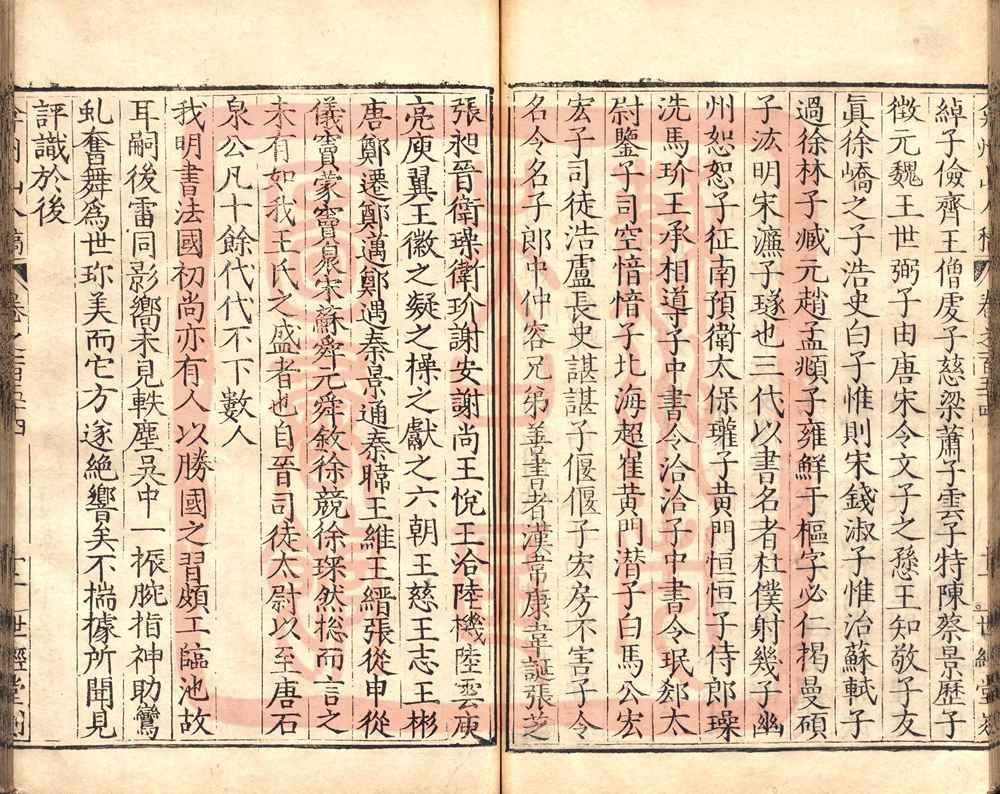 弇州山人稿 卷之一百五十四 十一 世經堂刻
綽子儉齊王僧虔子慈梁蕭子雲子特陳蔡景歷子
徵元魏王世弼子由唐宋令文子之愻王知敬子友
眞徐嶠之子浩史白子惟則宋錢淑子惟治蘇軾子
過徐林子臧元趙孟頫子雍鮮于樞字必仁揭曼碩
子汯明宋濂子璲也三代以書名者杜僕射幾子幽
州恕恕子征南預衛太保瓘子黃門恒恒子侍郎璪
洗馬玠王承相導子中書令洽洽子中書令珉郄太
尉鑒子司空愔愔子北海超崔黃門潛子白馬公宏
宏子司徒浩盧長史諶諶子偃偃子宏房不害子令
名令名子郎中仲容兄弟善書者漢韋康韋誕張芝
張昶晉衛璪衛玠謝安謝尚王悅王洽陸機陸雲庾
亮庾翼王徽之凝之操之獻之六朝王慈王志王彬
唐鄭遷鄭邁鄭遇秦景通秦暐王維王縉張從申從
儀竇蒙竇臮宋蘇舜元舜欽徐競徐琛然捴而言之
未有如我王氏之盛者也自晉司徒太尉以至唐石
泉公凡十餘代代不下數人
我明書法國初尚亦有人以勝國之習頗工臨池故
耳嗣後雷同影嚮未見軼塵吳中一振腕指神助鸞
虬奮舞爲世珍美而它方遂絶響矣不揣據所聞見
評識於後
弇州山人稿 卷之一百五十四 十二 世經堂刻